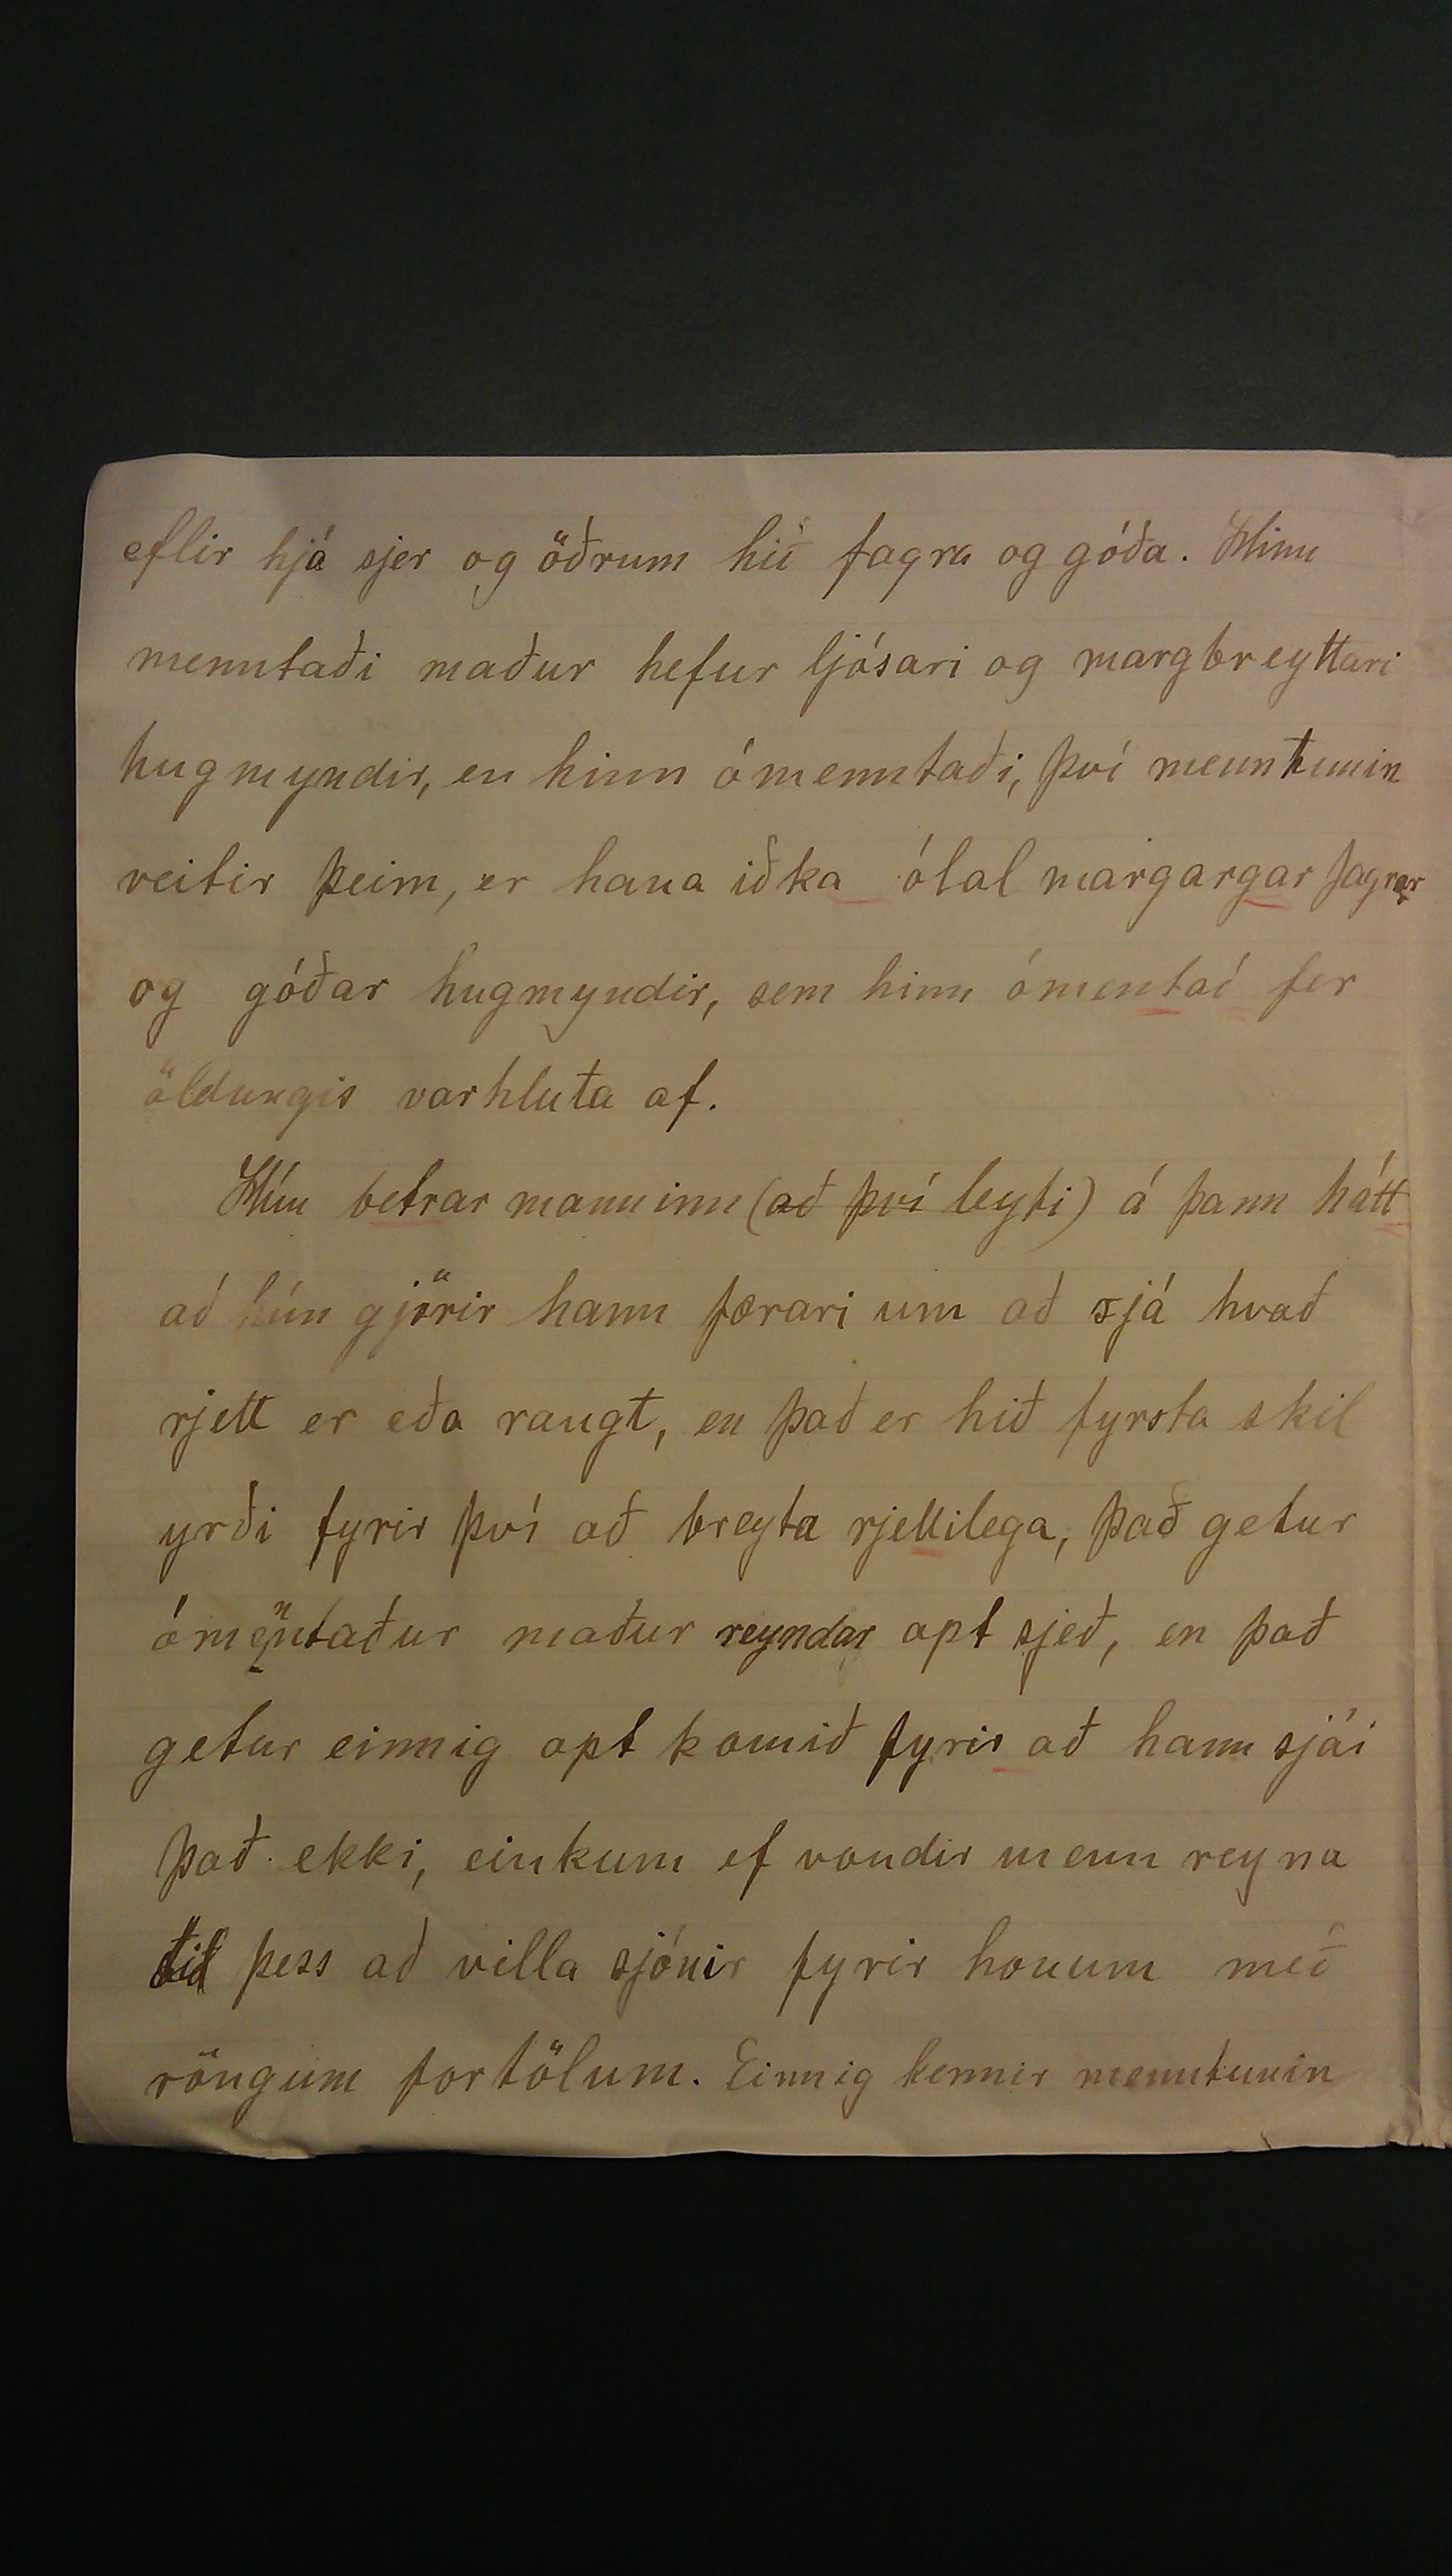 eflir hjá sjer og öðrum hið fagra og góða. Hinn
menntaði maður hefur ljósari og margbreyttari
hugmyndir, en hinn ómenntaði, því menntunin
veitir þeim, er hana iðka ótal margargar fagrar
og góðar hugmyndir, sem hinn ómentað fer
öldungis varhluta af.
Hún betrar manninn (að því leyti) á þann hátt
að hún gjörir hann færari um að sjá hvað
rjett er eða rangt, en það er hið fyrsta skil
yrði fyrir því að breyta rjettilega, það getur
ómenntaður maður reyndar opt sjeð, en það
getur einnig opt komið fyrir að hann sjái
það ekki, einkum ef vondir menn reyna
til þess að villa sjónir fyrir honum með
röngum fortölum. Einnig kennir menntunin